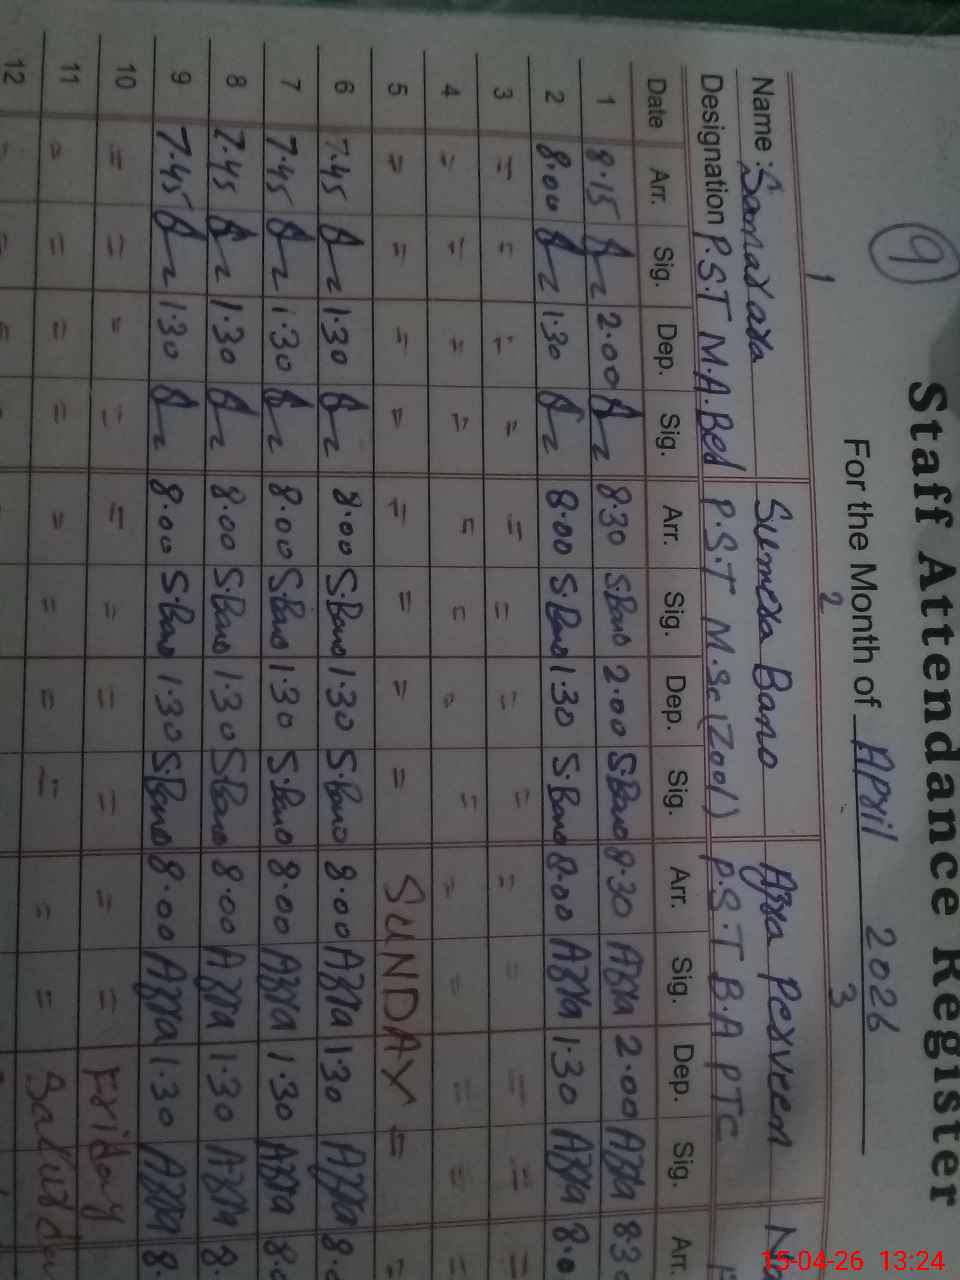 9
Staff Attendance Register
For the Month of April 2026
1 2 3
Name : Samarara Sumera Bano Azra Perveen
Designation P.S.T M.A.Bed P.S.T M.Sc (Zool) P.S.T B.A PTC
Date Arr. Sig. Dep. Sig. Arr. Sig. Dep. Sig. Arr. Sig. Dep. Sig. Arr.
1 8.15 2.00 8.30 S.Bano 2.00 S.Bano 8.30 Azra 2.00 Azra 8.30
2 8.00 1.30 8.00 S.Bano 1.30 S.Bano 8.00 Azra 1.30 Azra 8.0
3 = = = = = = = = = = = = =
4 = = = = = = = = = = = = =
5 = = = = = = = = SUNDAY = =
6 7.45 1.30 8.00 S.Bano 1.30 S.Bano 8.00 Azra 1.30 Azra 8.0
7 7.45 1.30 8.00 S.Bano 1.30 S.Bano 8.00 Azra 1.30 Azra 8.0
8 7.45 1.30 8.00 S.Bano 1.30 S.Bano 8.00 Azra 1.30 Azra 8.
9 7.45 1.30 8.00 S.Bano 1.30 S.Bano 8.00 Azra 1.30 Azra 8.
10 = = = = = = = = = = Friday
11 = = = = = = = = = = Saturday
12 = = =
15-04-26 13:24